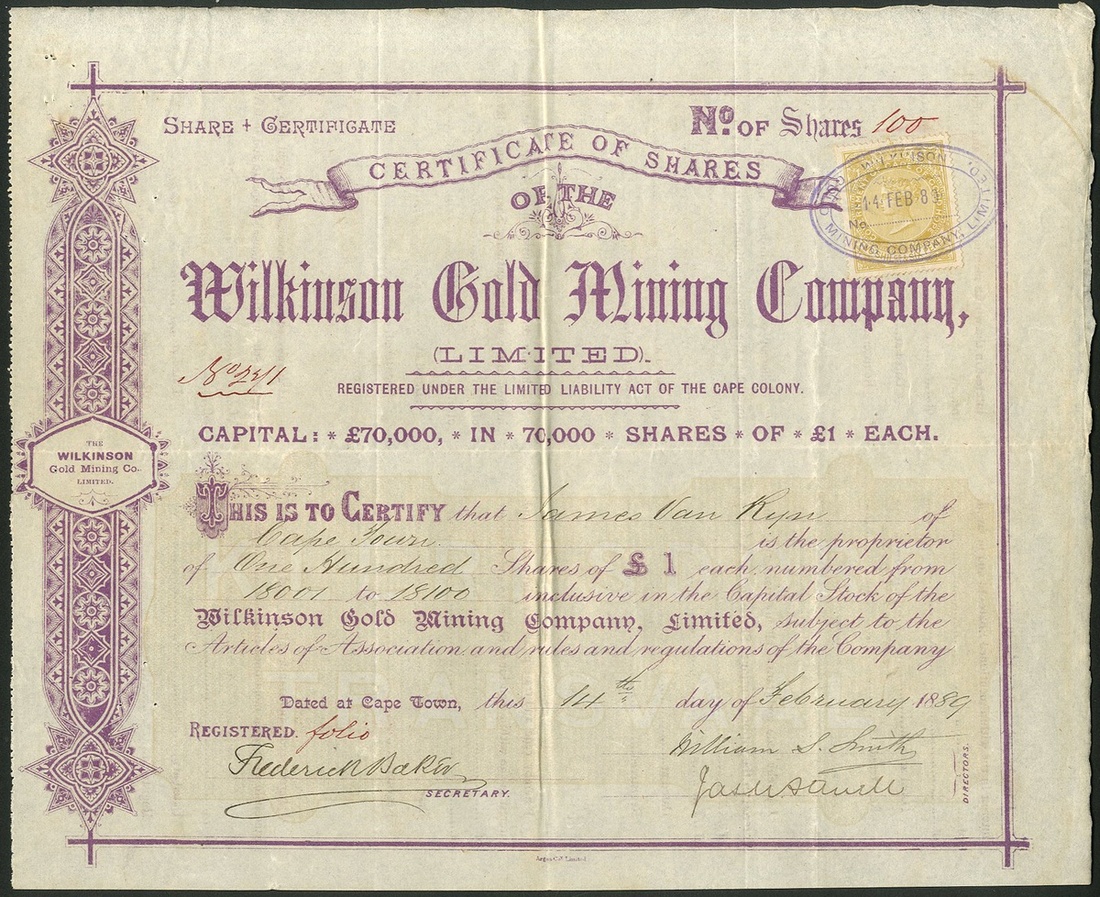 SHARE + CERTIFICATE
No. OF Shares 100
CERTIFICATE OF SHARES
OF THE
WILKINSON
14 FEB 89
No
MINING COMPANY, LIMITED.
Wilkinson Gold Mining Company,
(LIMITED).
REGISTERED UNDER THE LIMITED LIABILITY ACT OF THE CAPE COLONY.
No
CAPITAL: * £70,000, * IN * 70,000 * SHARES * OF * £1 * EACH.
THE
WILKINSON
Gold Mining Co.
LIMITED.
THIS IS TO CERTIFY that James Van Ryn of
Cape Town is the proprietor
of One Hundred Shares of £1 each, numbered from
18001 to 18100 inclusive in the Capital Stock of the
Wilkinson Gold Mining Company, Limited, subject to the
Articles of Association and rules and regulations of the Company
TRANSVAAL
Dated at Cape Town, this 14th day of February 1889
REGISTERED. folio
William S. Smith
Frederick Baker
SECRETARY.
DIRECTORS.
Argus Co. Limited